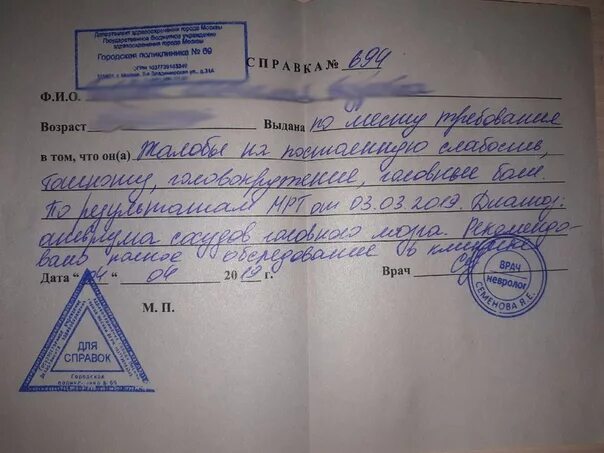 Департамент здравоохранения города Москвы
Государственное бюджетное учреждение
здравоохранения города Москвы
Городская поликлиника № 69
ОГРН
г. Москва, 2-я Владимирская ул., д.31А
СПРАВКА № 694
Ф.И.О.
Возраст Выдана по месту требования
в том, что он(а) Жалобы на постоянную слабость,
тошноту, головокружение, головные боли.
По результатам МРТ от 03.03.2019. Диагноз:
аневризма сосудов головного мозга. Рекомендо-
вано полное обследование в клинике
Дата " 04 " 04 2019 г. Врач
ВРАЧ
невролог
СЕМЕНОВА Я.Е.
М. П.
ДЛЯ
СПРАВОК
Городская
поликлиника № 69